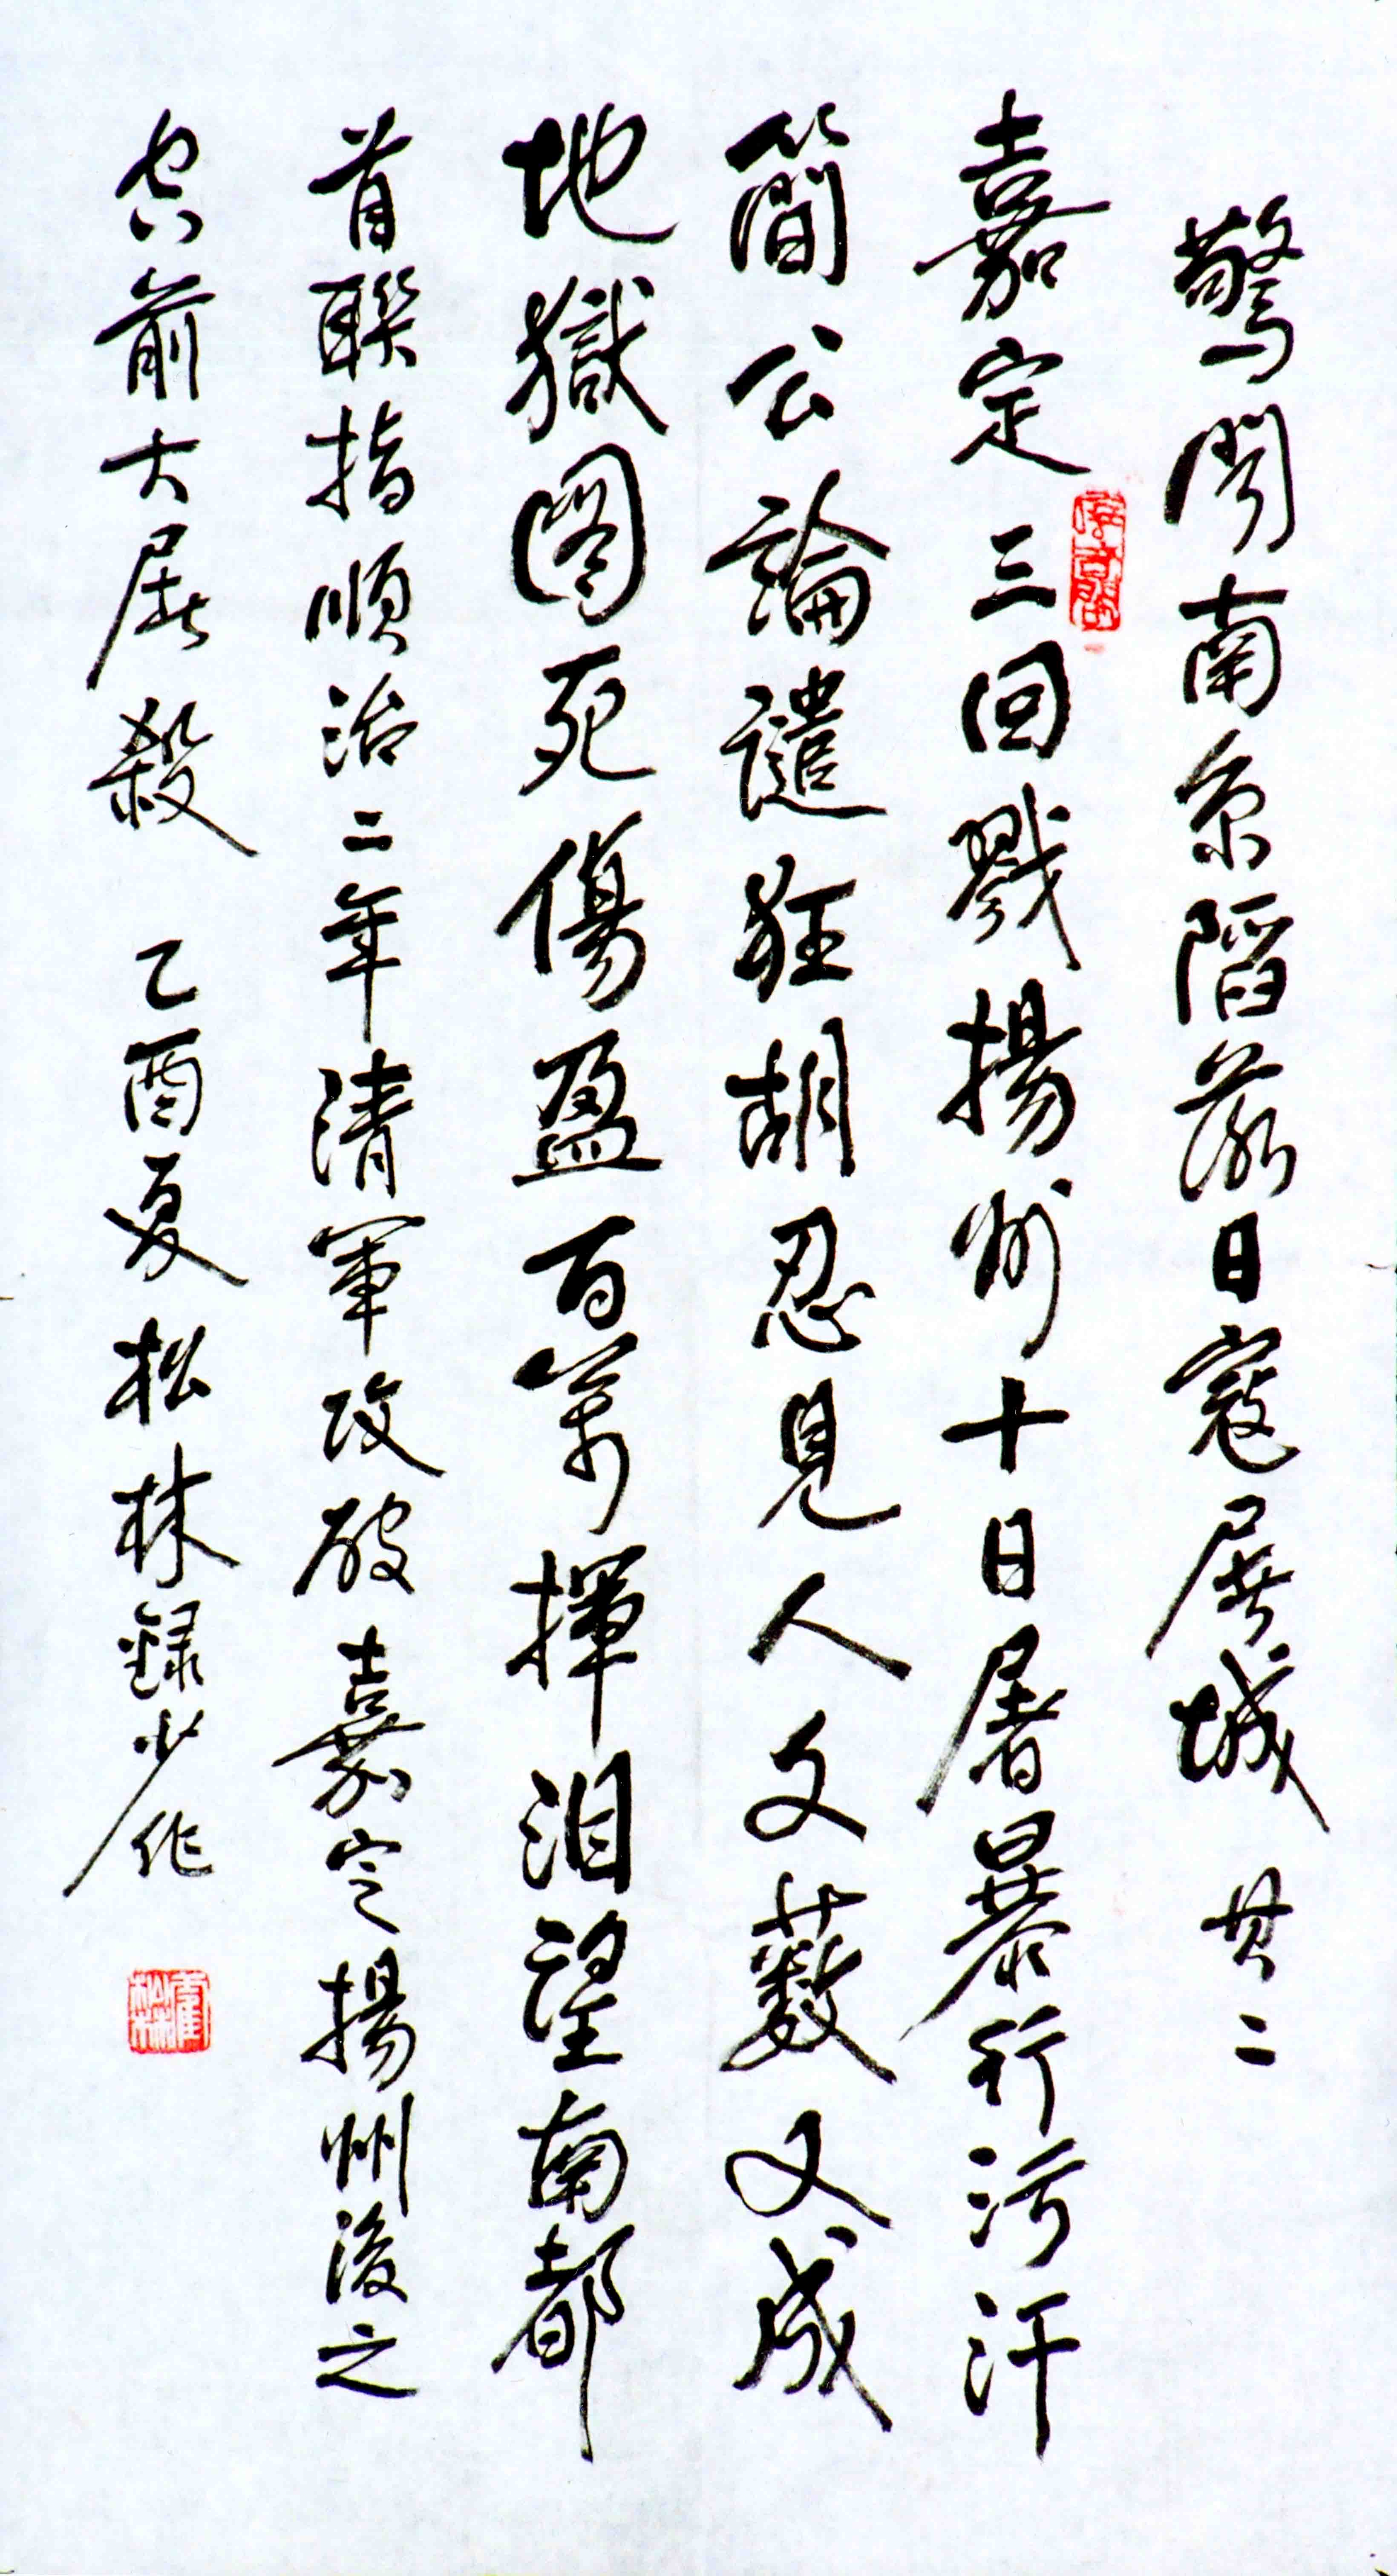 驚聞南京陷落日寇屠城 其二
嘉定三回戮揚州十日屠暴行污汗
簡公論譴狂胡忍見人文藪又成
地獄圖死傷盈百萬揮泪望南都
首聯指順治二年清軍攻破嘉定揚州後之
空前大屠殺 乙酉夏松林録少作
霍松林